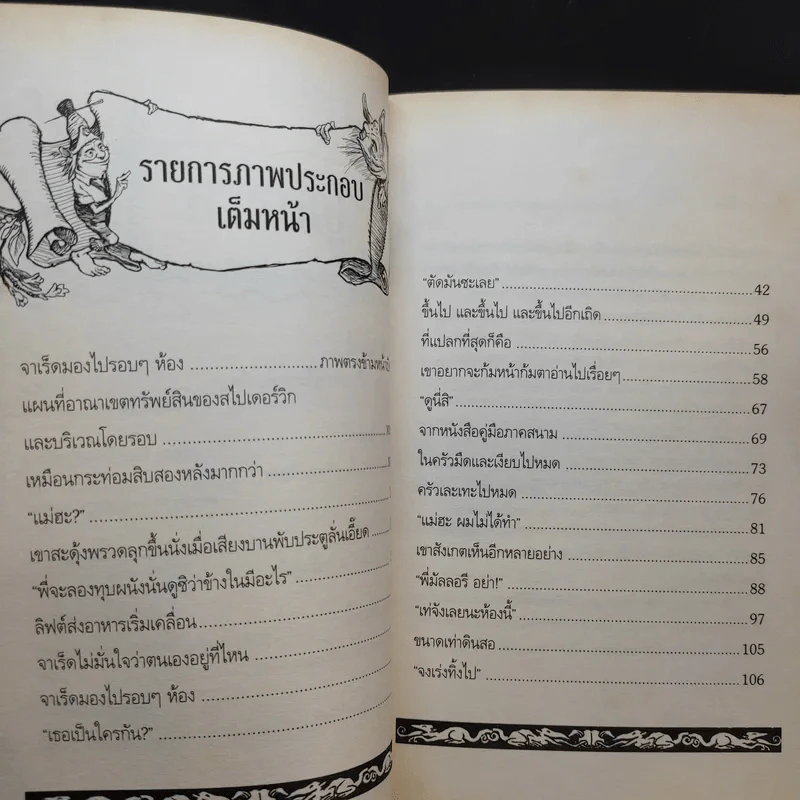 รายการภาพประกอบ
เต็มหน้า
จาเร็ดมองไปรอบๆ ห้อง ........................ภาพตรงข้ามหน้า
แผนที่อาณาเขตทรัพย์สินของสไปเดอร์วิก
และบริเวณโดยรอบ
เหมือนกระท่อมสิบสองหลังมากกว่า
“แม่ฮะ?”
เขาสะดุ้งพรวดลุกขึ้นนั่งเมื่อเสียงบานพับประตูลั่นเอี๊ยด
“พี่จะลองทุบผนังนั่นดูซิว่าข้างในมีอะไร”
ลิฟต์ส่งอาหารเริ่มเคลื่อน
จาเร็ดไม่มั่นใจว่าตนเองอยู่ที่ไหน
จาเร็ดมองไปรอบๆ ห้อง
“เธอเป็นใครกัน?”
“ตัดมันซะเลย”........................42
ขึ้นไป และขึ้นไป และขึ้นไปอีกเถิด........................49
ที่แปลกที่สุดก็คือ ........................56
เขาอยากจะก้มหน้าก้มตาอ่านไปเรื่อยๆ........................58
“ดูนี่สิ”........................67
จากหนังสือคู่มือภาคสนาม ........................69
ในครัวมืดและเงียบไปหมด ........................73
ครัวเละเทะไปหมด ........................76
“แม่ฮะ ผมไม่ได้ทำ”........................81
เขาสังเกตเห็นอีกหลายอย่าง ........................85
“พี่มัลลอรี อย่า!”........................88
“เท่จังเลยนะห้องนี้”........................97
ขนาดเท่าดินสอ ........................105
“จงเร่งทิ้งไป”........................106